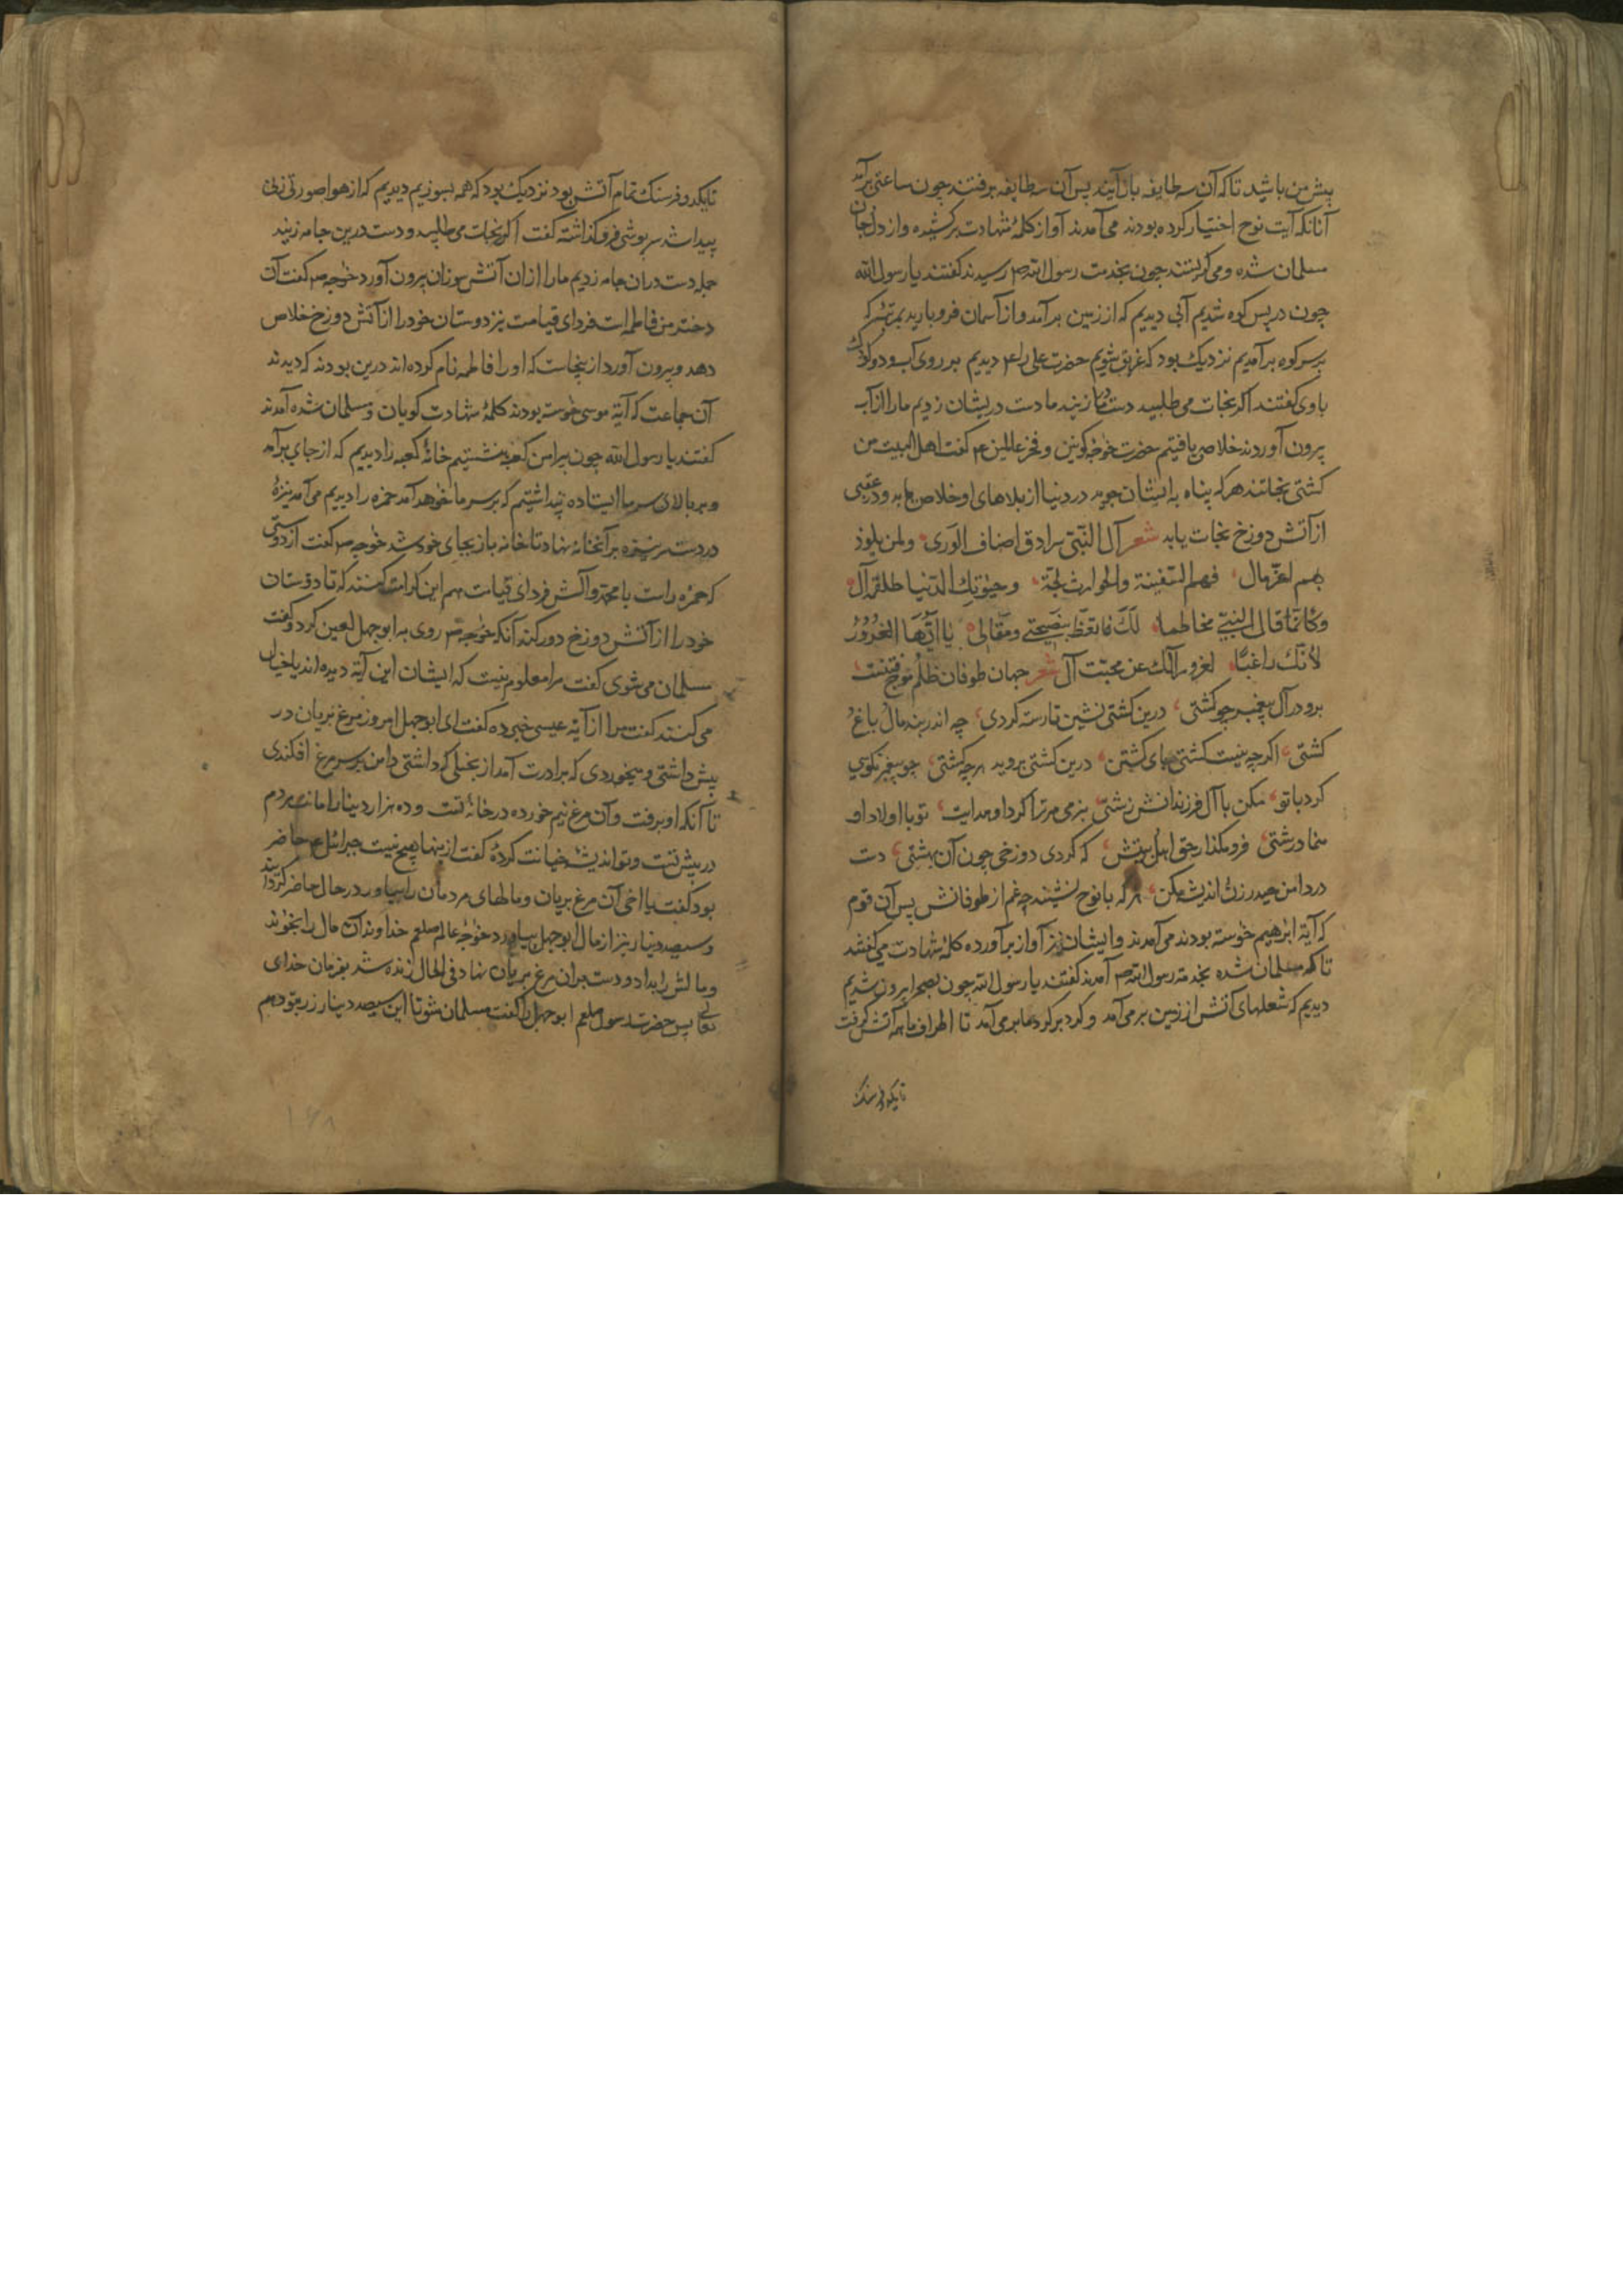 پیش من باشید تا که آن سه طایفه باز آیند پس آن سه طایفه برفتند چون ساعتی برآمد
آنانکه آیت نوح اختیار کرده بودند می آمدند آواز کلمهٔ شهادت برکشیده و از دل و جان
مسلمان شده و می گریستند چون بخدمت رسول الله ص رسیدند گفتند یا رسول الله
چون در پس کوه شدیم آبی دیدیم که از زمین برآمد و از آسمان فرو بارید
بر سر کوه برآمدیم نزدیک بود که غرق شویم حضرت علی را ع دیدیم بر روی آب و دو کودک
با وی گفتند اگر نجات می طلبید دست در ما زنید ما دست در یشان زدیم ما را از آب
بیرون آوردند خلاص یافتیم حضرت خواجه کونین و فخر عالمین ع گفت اهل البیت من
کشتی نجاتند هر که پناه به ایشان جوید در دنیا از بلاهای او خلاص یابد و در عقبی
از آتش دوزخ نجات یابد شعر آل النبی سرادق اصناف الوری ولمن یلوذ
بهم لعز مآل فهم السفینة والحوارث لجة وحیوتک الدنیا
وکانما قال النبی مخاطبا لک فاتعظ بنصیحتی ومقالی یا ایها المغرور
لانک راغبا لغرور آلک عن محبت آل شعر جهان طوفان ظلم نوح فتنست
برو در آل پیغمبر چو کشتی درین کشتی نشین تا رسته کردی چه اندر بند مال باغ و
کشتی اگر چه نیست کشتی جای کشتن درین کشتی بروید هر چه کشتی چو پیغمبر نکویی
کرد با تو مکن با آل فرزندانش زشتی بنرمی مر ترا کرد او هدایت تو با اولاد او
منما درشتی فرو مگذار حق اهل بیتش که گردی دوزخی چون آن بهشتی دست
در دامن حیدر زن و اندیشه مکن هر که با نوح نشیند چه غم از طوفانش پس آن قوم
که آیة ابرهیم خواسته بودند می آمدند و ایشان نیز آواز برآورده کلمهٔ شهادت می گفتند
تا که مسلمان شده بخدمة رسول الله ص آمدند گفتند یا رسول الله چون بصحرا بیرون شدیم
دیدیم که شعلهای آتش از زمین برمی آمد و گرد بر گرد ما برمی آمد تا اطراف ما همه آتش گرفت
تا یکدو فرسنک
تا یکدو فرسنک تمام آتش بود نزدیک بود که همه بسوزیم دیدیم که از هوا صورتی زنی
پیدا شد سرپوشی فرو گذاشته گفت اگر نجات می طلبید دست درین جامه زنید
جمله دست در آن جامه زدیم ما را از آن آتش سوزان بیرون آورد خواجه ص گفت آن
دختر من فاطمه است فردای قیامت نیز دوستان خود را از آتش دوزخ خلاص
دهد و بیرون آورد از ینجاست که او را فاطمه نام کرده اند درین بودند که دیدند
آن جماعت که آیة موسی خواسته بودند کلمهٔ شهادت گویان و مسلمان شده آمدند
گفتند یا رسول الله چون پیرامن کعبه بنشستیم خانهٔ کعبه را دیدیم که از جای برآمد
و بر بالای سر ما ایستاده پنداشتیم که بر سر ما خواهد آمد حمزه را دیدیم می آمد نیزهٔ
در دست سر نیزه بر آنخانه نهاد تا خانه باز بجای خود شد خواجه ص گفت از دوستی
که حمزه راست با محمد و آلش فردای قیامت هم این کرامت کنند که تا دوستان
خود را از آتش دوزخ دور کند آنکه خواجه ص روی به ابو جهل لعین کرد و گفت
مسلمان می شوی گفت مرا معلوم نیست که ایشان این آیة دیده اند یا خیال
می کنند گفت مرا از آیة عیسی خبر ده گفت ای ابو جهل امروز مرغ بریان در
پیش داشتی و میخوردی که برادرت آمد از بخیلی که داشتی دامن بر سر مرغ افکندی
تا آنکه او برفت و آن مرغ نیم خورده در خانهٔ تست و ده هزار دینار امانت مردم
در پیش تست و تو اندیشهٔ خیانت کردهٔ گفت ازینها هیچ نیست جبرائیل ع حاضر
بود گفت یا اخی آن مرغ بریان و مالهای مردمان را بیاور در حال حاضر گردانید
و سیصد دینار نیز از مال ابو جهل بیاورد خواجه عالم صلعم خداوندان مال را بخواند
و مالش را بداد و دست بر آن مرغ بریان نهاد فی الحال زنده شد بفرمان خدای
تعالی پس حضرت رسول صلعم ابو جهل را گفت مسلمان شو تا این سیصد دینار زر بتو دهم
۱۶۸